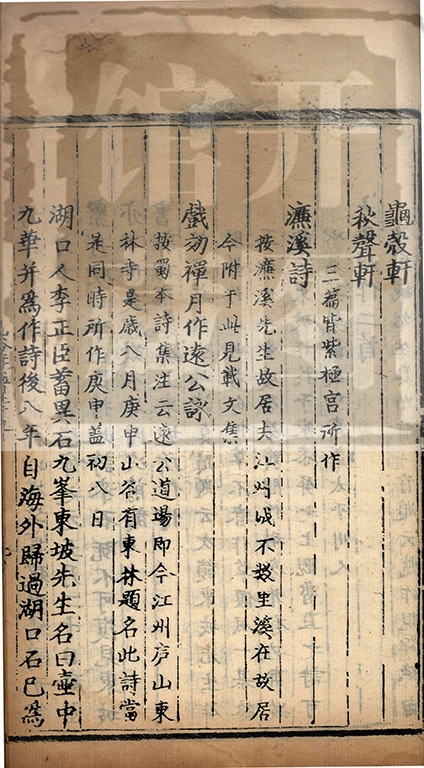 龜殼軒
秋聲軒
三篇皆紫極宮所作
濂溪詩
按濂溪先生故居去江州城不數里溪在故居
今附于此見載文集
戲効禪月作遠公詠
按蜀本詩集注云遠公道場即今江州庐山東
林寺是歳八月庚申山谷有東林題名此詩當
是同時所作庚申盖初八日
湖口人李正臣蓄異石九峯東坡先生名曰壷中
九華并爲作詩後八年自海外歸過湖口石已爲